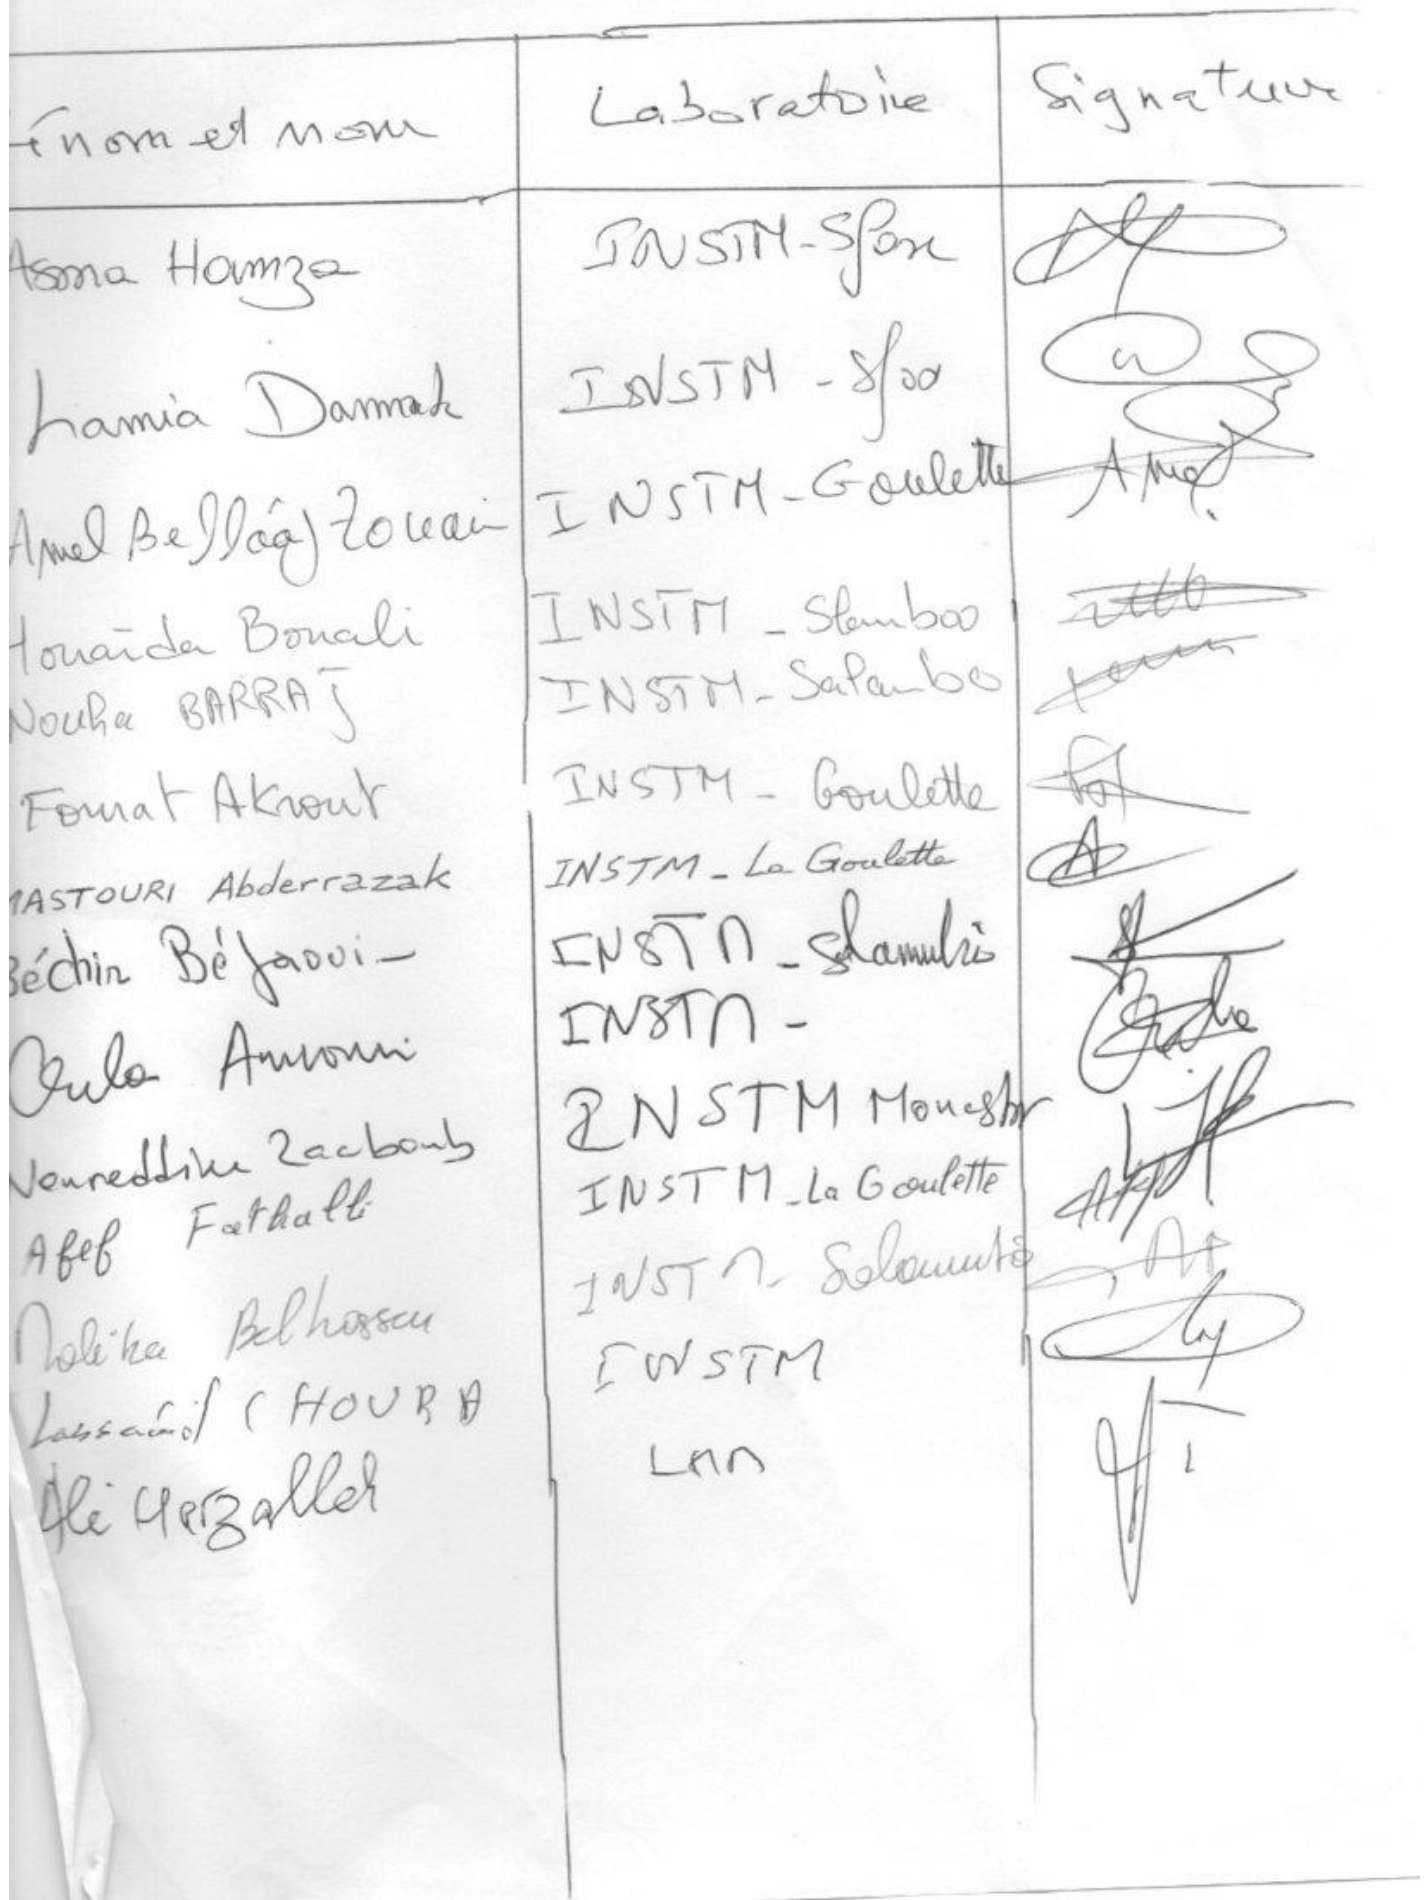 énom et nom Laboratoire Signature
Asma Hamza INSTM-Sfax
Lamia Dammak INSTM - Sfax
Amel Bellaâj Zouari INSTM-Goulette Amel
Houaïda Bouali INSTM - Slamboo
Nouha BARRAJ INSTM-Salamboo
Fourat Akrout INSTM - Goulette
MASTOURI Abderrazak INSTM - La Goulette
Béchir Béjaoui - INSTM - Slambo
Amouri INSTM -
Noureddine Zaaboub INSTM Monastir
Afef Fathalli INSTM - La Goulette
Malika Belhassen INSTM - Salambô
Lassaâd CHOUBA INSTM
Ali Harzallah LMM